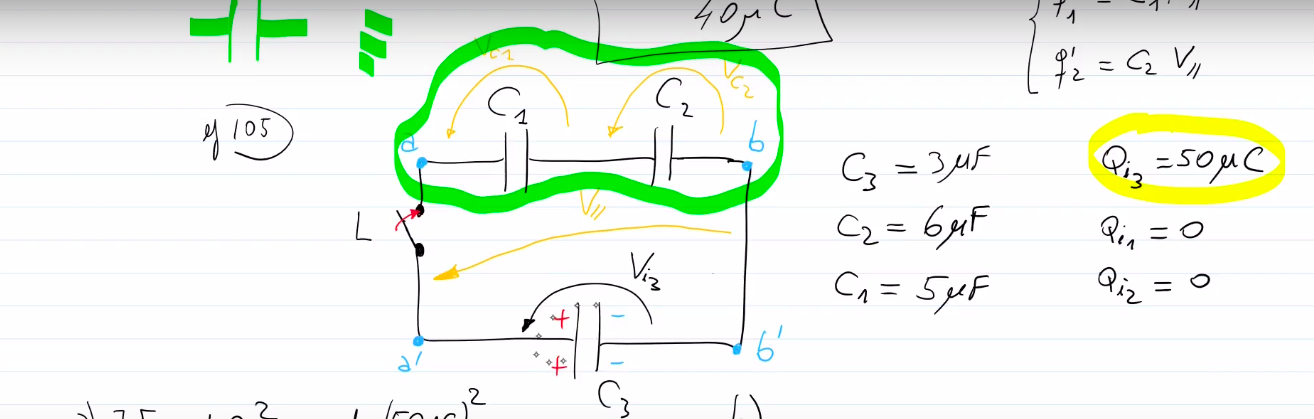 40μC
q'2 = C2 V//
y 105
VC1
VC2
C1
C2
a
b
V//
L
Vi3
+ -
+ -
a'
b'
C3
C3 = 3μF
C2 = 6μF
C1 = 5μF
Qi3 = 50μC
Qi1 = 0
Qi2 = 0